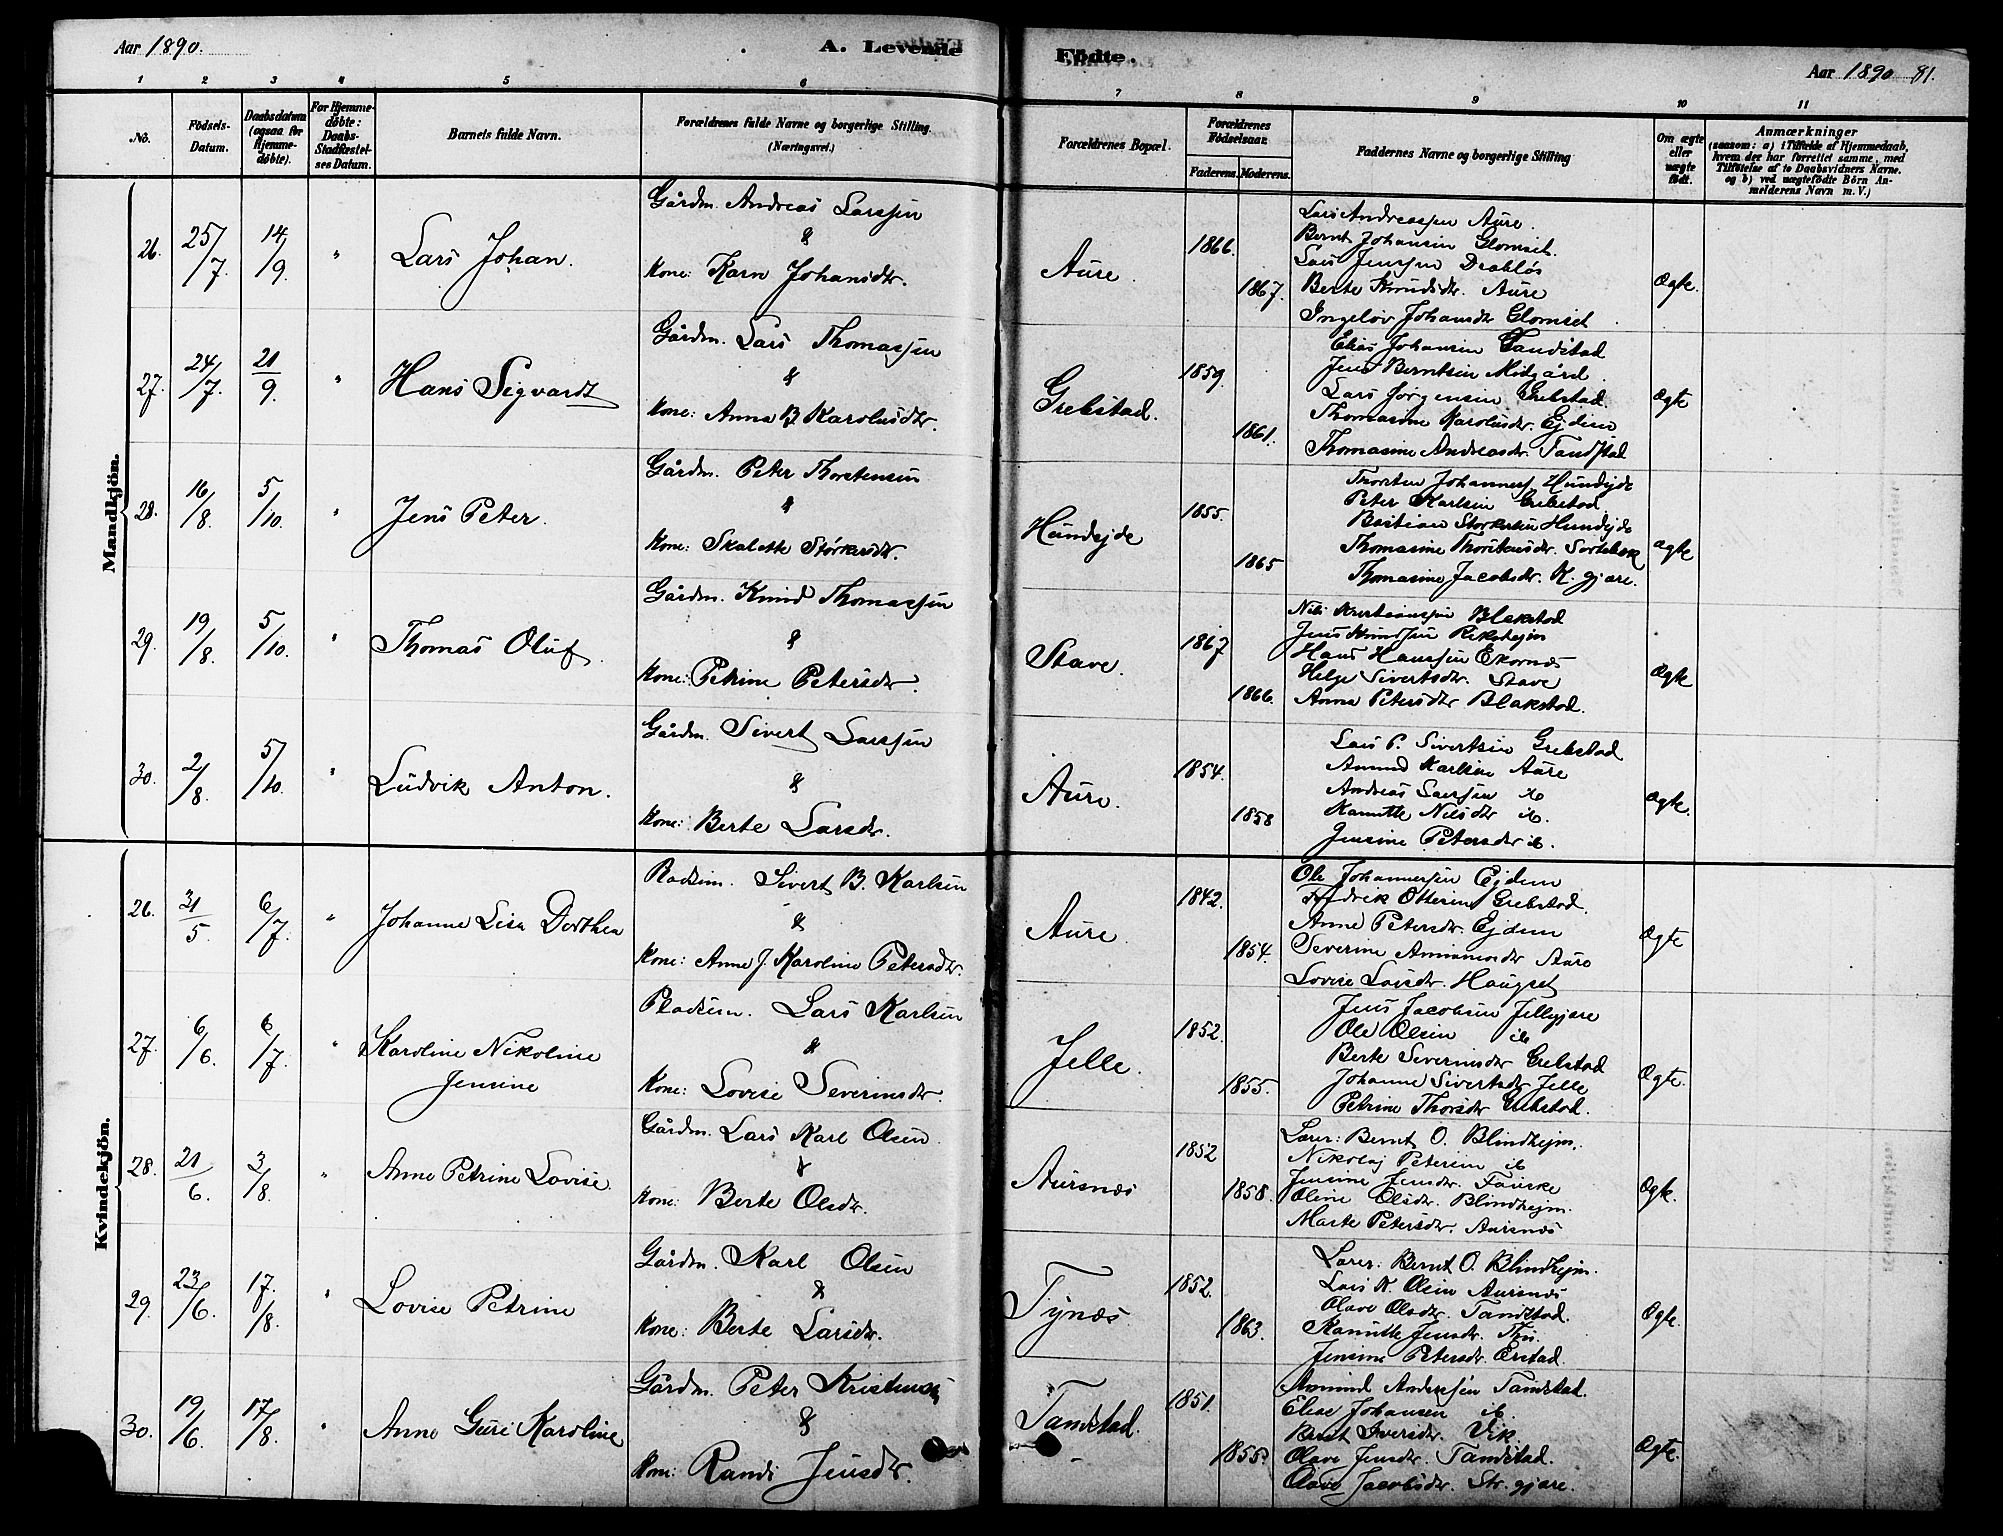 Aar 1890.
A. Levende
Födte.
Aar 1890 81.
1 2 3 4 5 6 7 8 9 10 11
No. Födsels-Datum. Daabsdatum (ogsaa for Hjemmedøbte). For Hjemmedøbte: Daabs-Stadfæstelses Datum. Barnets fulde Navn. Forældrenes fulde Navne og borgerlige Stilling. (Næringsvei.) Forældrenes Bopæl. Forældrenes Födselsaar. Faderens. Moderens. Faddernes Navne og borgerlige Stilling Om ægte eller uægte födt. Anmærkninger (saasom: a) i Tilfælde af Hjemmedaab, hvem der har forrettet samme, med Tilføielse af to Daabsvidners Navne, og b) ved uægtefödte Börn Anmelderens Navn m. V.)
Mandkjön.
26. 25/7. 14/9. " Lars Johan.
Gårdm. Andreas Larssen
&
Kone: Karn Johansdtr.
Aure. 1866. 1867.
Lars Andreassen Aure.
Bernt Johansen Glomset.
Lars Jenssen Drabløs
Berte Knudsdtr. Aure
Ingeløv Johansdtr Glomset
Ægte.
27. 24/7. 21/9. " Hans Sigvardt
Gårdm. Lars Thomassen
&
Kone: Anna B. Karolusdtr.
Grebstad. 1859. 1861.
Elias Johansen Tandstad
Jens Berntsen Midgård.
Lars Jørgensen Grebstad.
Thomasine Karolusdtr. Ejdem
Thomasine Andreasdtr Tandstad
Ægte
28. 16/8. 5/10. " Jens Peter.
Gårdm. Peter Thorstensen
&
Kone: Skalette Størkersdtr.
Hundejde 1855. 1865
Thorsten Johannes. Hundejde
Peter Karlsen Grebstad
Bastian Størkersen Hundejde
Thomasine Thorstensdtr.
Thomasine Jacobsdtr. K. gjære.
Ægte
29. 19/8. 5/10. " Thomas Oluf.
Gårdm. Knud Thomassen
&
Kone: Petrine Petersdtr.
Stave. 1867 1866.
Nils Kristianssen Blakstad
Jens Knudsen
Hans Hanssen Ekornæs
Helge Sivertsdtr. Stave
Anna Petersdtr Blakstad.
Ægte
30. 2/8. 5/10. " Ludvik Anton.
Gårdm. Sivert Larssen
&
Kone: Berte Larsdtr.
Aure. 1854. 1858
Lars P. Sivertsen Grebstad
Amund Karlsen Aure
Andreas Larssen ib
Kanutte Nilsdtr ib.
Jensine Petersdtr ib.
Ægte.
Kvindekjön.
26. 31/5. 6/7. " Johanne Lisa Dorthea
Pladsm. Sivert B. Karlsen
&
Kone: Anne J. Karoline Petersdtr.
Aure. 1842. 1854.
Ole Johannessen Ejdem
Fredrik Ottesen Grebstad.
Anne Petersdtr. Ejdem
Severine Aure
Lovise Larsdtr. Haugset
Ægte
27. 6/6. 6/7. " Karoline Nikoline
Jensine
Pladsm. Lars Karlsen
&
Kone: Lovise Severinsdtr.
Jelle. 1852. 1855.
Jens Jacobsen Jellegjære
Ole Olsen ib
Berte Severinsdtr Grebstad
Johanne Sivertsdtr Jelle
Petrine Thorsdtr Grebstad.
Ægte.
28. 21/6. 3/8. " Anne Petrine Lovise.
Gårdm. Lars Karl Olsen.
&
Kone: Berte Olsdtr.
Aursnæs 1852 1858.
Lærer: Bernt O. Blindhejm.
Nikolaj Petersen ib
Jensine Jensdtr. Fauske
Oline Olsdtr. Blindhejm.
Marte Petersdtr. Aursnæs
Ægte.
29. 23/6. 17/8. " Lovise Petrine
Gårdm. Karl Olsen
&
Kone: Berte Larsdtr.
Tynæs 1852. 1863.
Lærer: Bernt O. Blindhejm.
Lars K. Olsen Aursnæs
Olave Olsdtr. Tandstad.
Kanutte Jensdtr.
Jensine Petersdtr. Erstad.
Ægte.
30. 19/6. 17/8. " Anne Guri Karoline
Gårdm. Peter Kristensen
&
Kone: Randi Jensdtr.
Tandstad. 1851. 1855.
Amund Anderssen Tandstad.
Elias Johansen ib.
Iversdtr. Vik.
Olave Jensdtr. Tandstad.
Olave Jacobsdtr. Str. gjære.
Ægte.